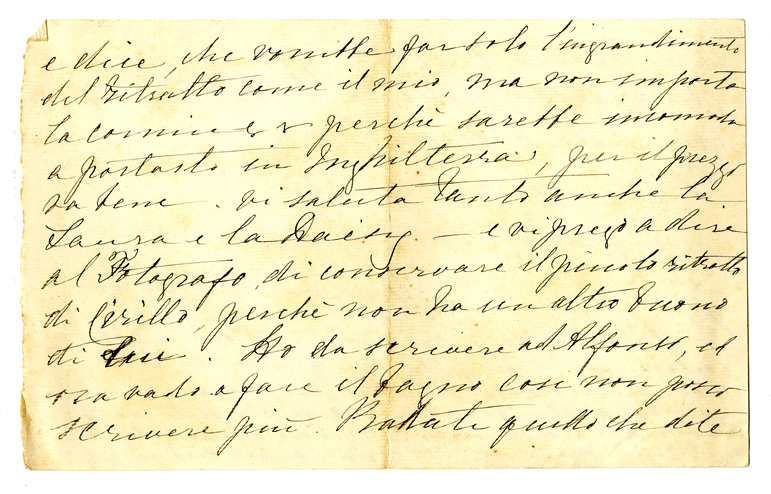 e dice, che vorrebbe far solo l'ingrandimento
del ritratto come il mio, ma non importa
la cornice perchè sarebbe incomodo
a portarlo in Inghilterra, per il prezzo
va bene. vi saluta tanto anche la
Laura e la Daisy — e vi prego a dire
al Fotografo, di conservare il piccolo ritratto
di Cirillo, perchè non ha un altro buono
di lui. Ho da scrivere ad Alfonso, ed
ora vado a fare il bagno così non posso
scrivere più. Badate quello che dite